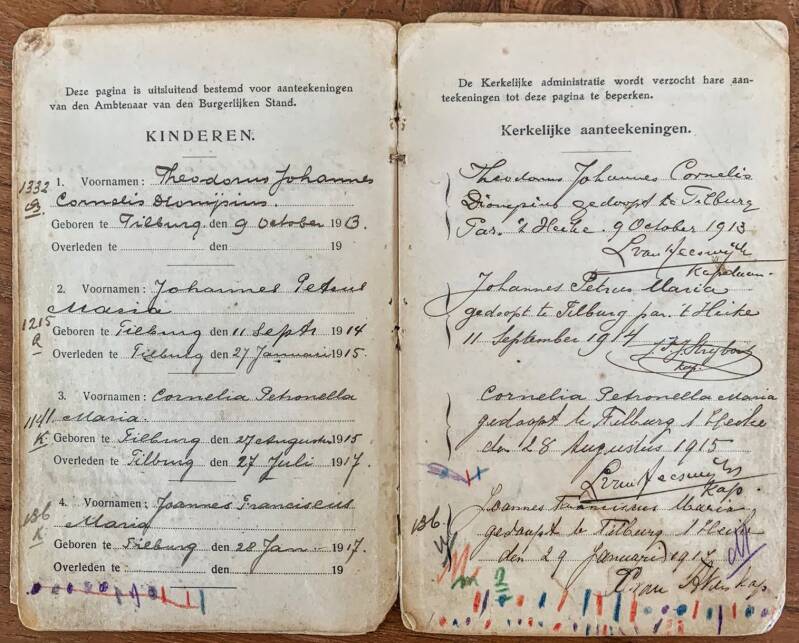 Deze pagina is uitsluitend bestemd voor aanteekeningen
van den Ambtenaar van den Burgerlijken Stand.
KINDEREN.
1332
1. Voornamen: Theodorus Johannes
Cornelis Dionijsius.
Geboren te Tilburg. den 9 October 1913.
Overleden te den 19
2. Voornamen: Johannes Petrus
Maria
1215
Geboren te Tilburg den 11 Septr 1914
Overleden te Tilburg den 27 Januari 1915.
3. Voornamen: Cornelia Petronella
1141 Maria.
K.
Geboren te Tilburg den 27 Augustus 1915
Overleden te Tilburg den 27 Juli 1917.
4. Voornamen: Joannes Franciscus
136 Maria
K.
Geboren te Tilburg den 28 Jan 1917.
Overleden te den 19
De Kerkelijke administratie wordt verzocht hare aan-
teekeningen tot deze pagina te beperken.
Kerkelijke aanteekeningen.
Theodorus Johannes Cornelis
Dionysius gedoopt te Tilburg
Par. 't Heike 9 October 1913
L van Heeswijk
Kapelaan
Johannes Petrus Maria
gedoopt te Tilburg par. 't Heike
11 September 1914
kap.
Cornelia Petronella Maria
gedoopt te Tilburg 't Heike
den 28 Augustus 1915
L van Heeswijk
Kap.
Joannes Franciscus Maria
136 gedoopt te Tilburg 't Heike
den 29 Januari 1917
kap